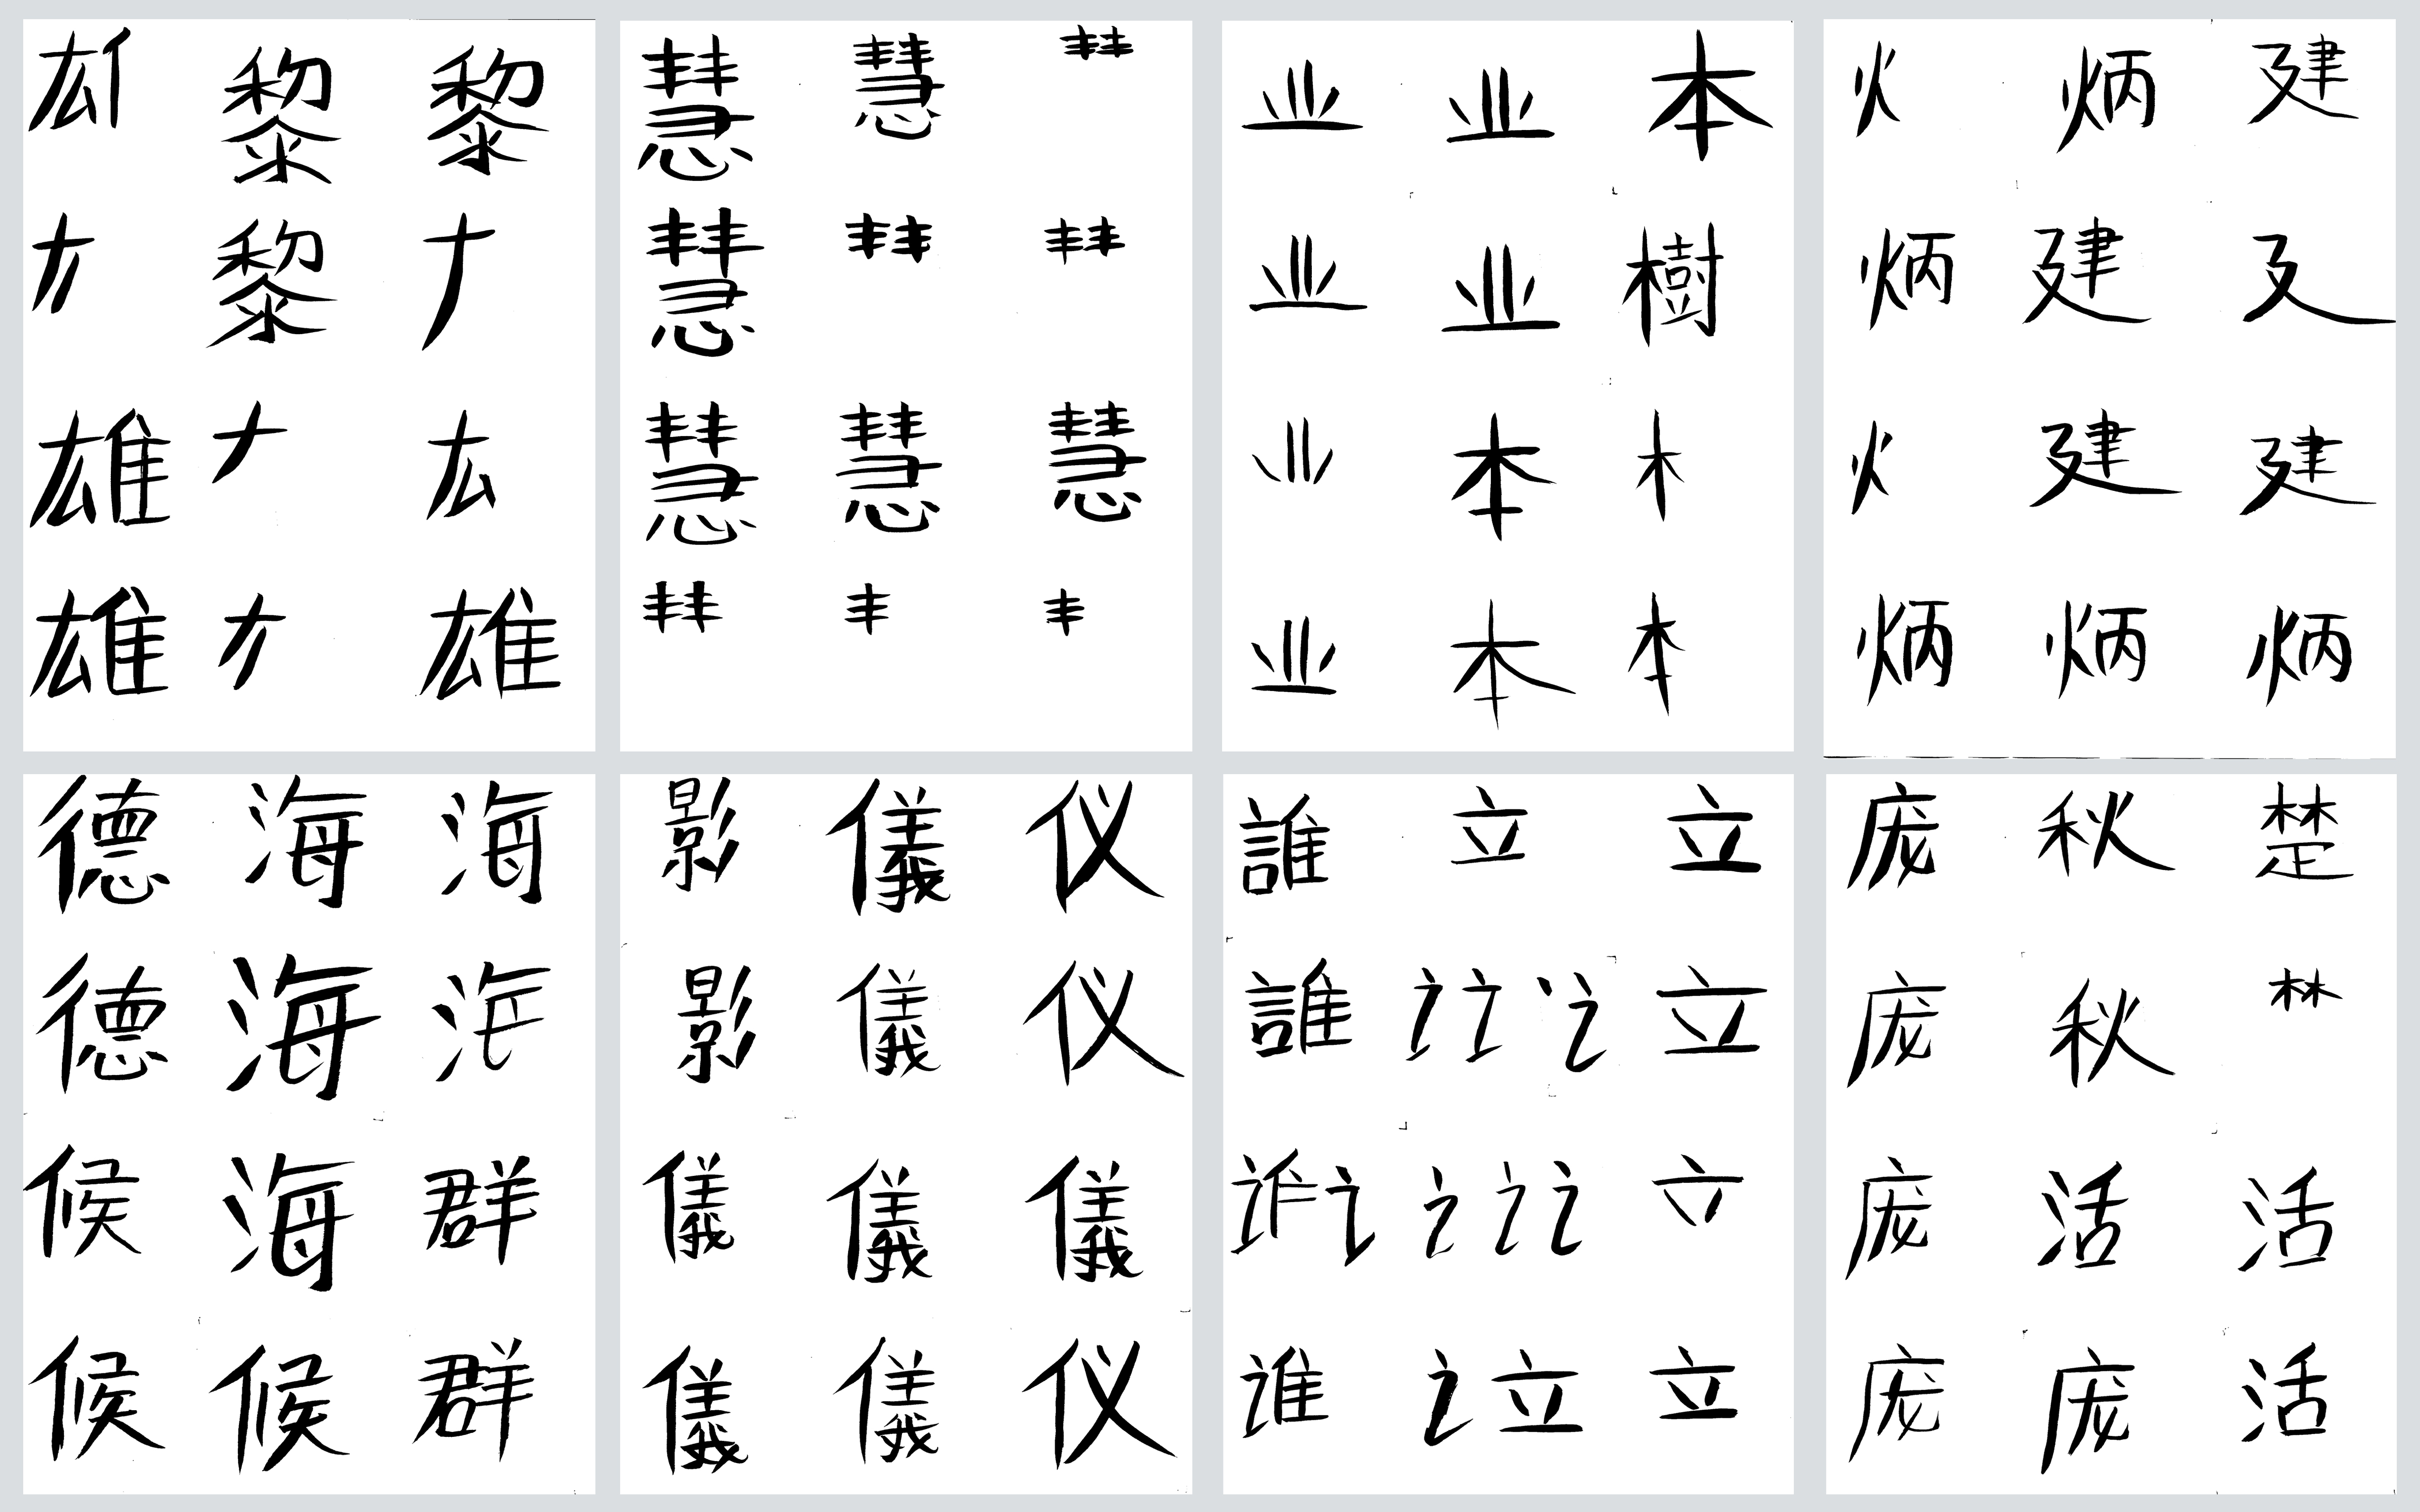 黎 黎
黎
雄 𠂇 厷
雄 雄
慧 慧 丰丰
慧 丰丰 丰丰
慧 慧 慧
丰丰 丰 丰
业 业 本
业 业 樹
本 木
业 本 本
火 炳 建
炳 建
火 建 建
炳 炳 炳
德 海 海
德 海
候 海 群
候 候 群
影 儀 仪
影 儀 仪
儀 儀 儀
儀 儀 仪
誰 立 立
誰 讠 讠 讠 讠 立
讠 讠 讠 讠
谁 讠 立 立
庞 秋 楚
庞 秋 林
庞 活 活
庞 庞 活